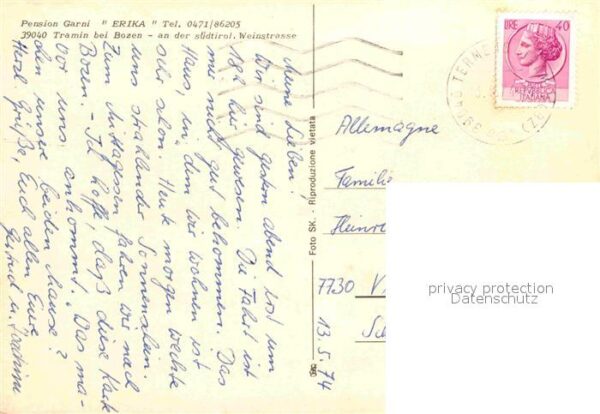 Pension Garni " ERIKA " Tel. 0471/86205
39040 Tramin bei Bozen - an der südtirol. Weinstrasse
Meine Lieben!
Wir sind gestern abend erst um
18h hier gewesen. Die Fahrt ist
mir nicht gut bekommen. Das
Haus, in dem wir wohnen ist
sehr schön. Heute morgen weckte
uns strahlender Sonnenschein.
Zum Mittagessen fahren wir nach
Bozen - Ich hoffe, daß diese Karte
vor uns ankommt. Das ma-
chen unsere beiden Mäuse?
Herzl. Grüße, Euch allen Eure
Gertrud u. Joachim
Foto SK. - Riproduzione vietata
LIRE 40
Allemagne
Familie
Heinr
7730 V
Sch
13.5.74
privacy protection
Datenschutz